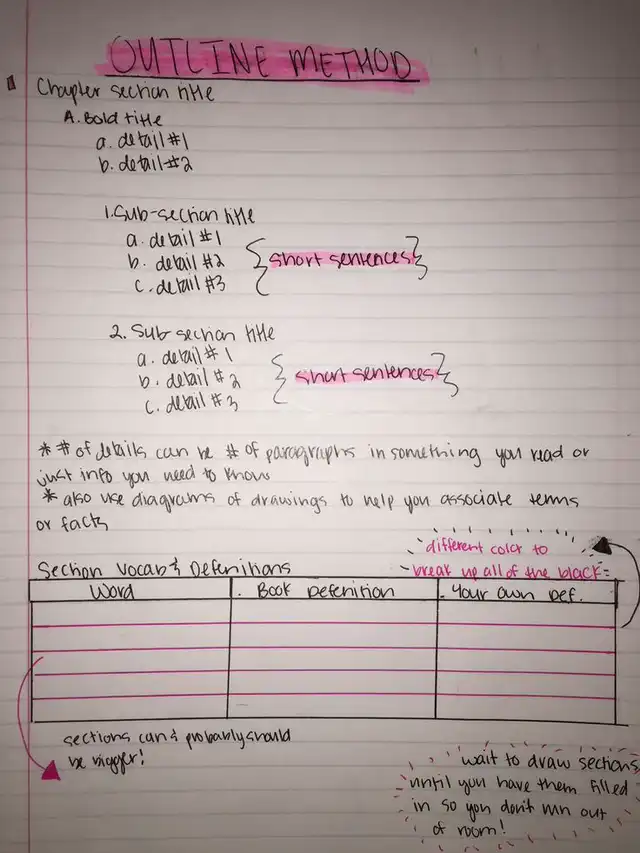 OUTLINE METHOD
Chapter section title
A. Bold title
a. detail #1
b. detail #2
1. Sub-section title
a. detail #1
b. detail #2
c. detail #3
short sentences
2. Sub section title
a. detail #1
b. detail #2
c. detail #3
short sentences
* # of details can be # of paragraphs in something you read or
just info you need to know
* also use diagrams of drawings to help you associate terms
or facts
different color to
break up all of the black
Section Vocab & Defenitions
Word Book Defenition Your Own Def.
sections can & probably should
be bigger!
wait to draw sections
until you have them filled
in so you don't run out
of room!